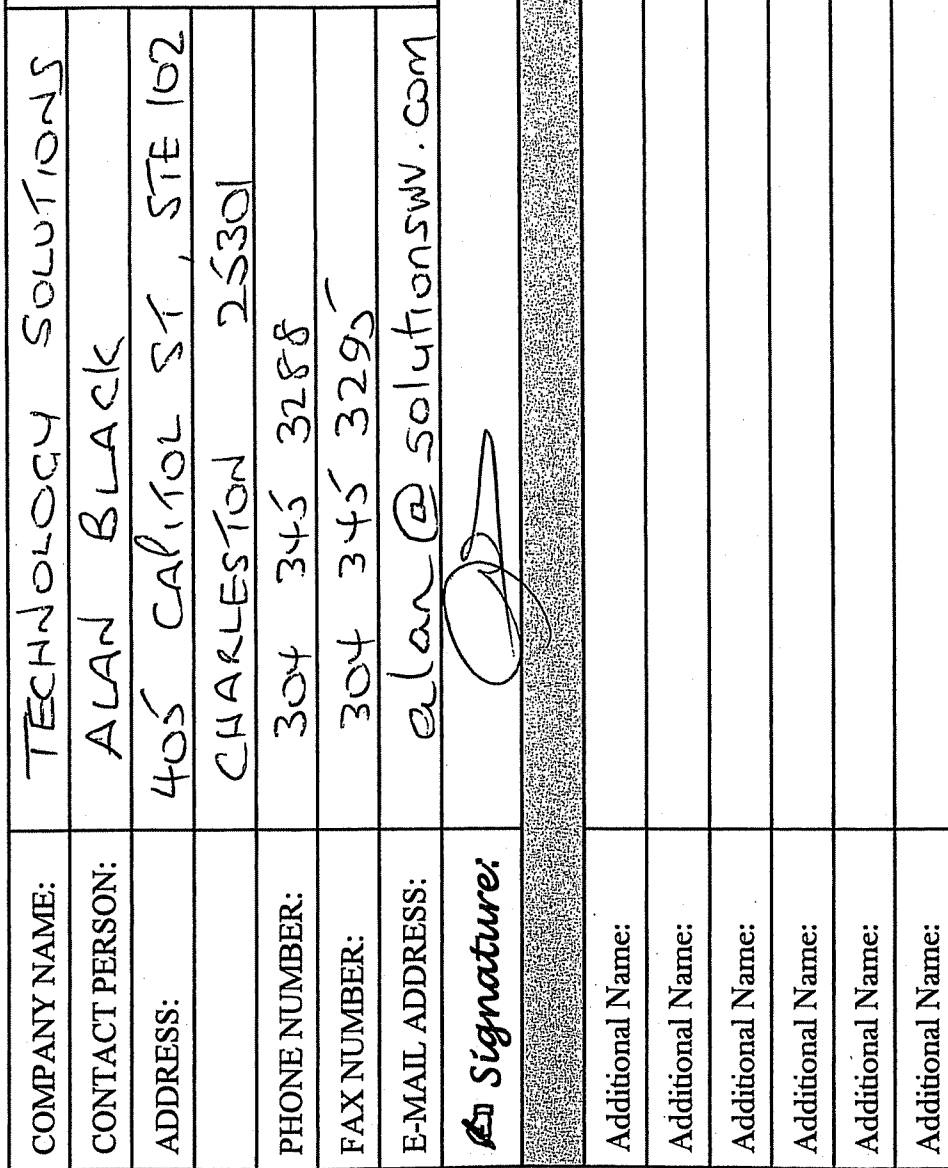 COMPANY NAME: TECHNOLOGY SOLUTIONS
CONTACT PERSON: ALAN BLACK
ADDRESS: 405 CAPITOL ST, STE 102
CHARLESTON 25301
PHONE NUMBER: 304 345 3288
FAX NUMBER: 304 345 3295
E-MAIL ADDRESS: alan@solutionswv.com
Signature:
Additional Name:
Additional Name:
Additional Name:
Additional Name:
Additional Name:
Additional Name: